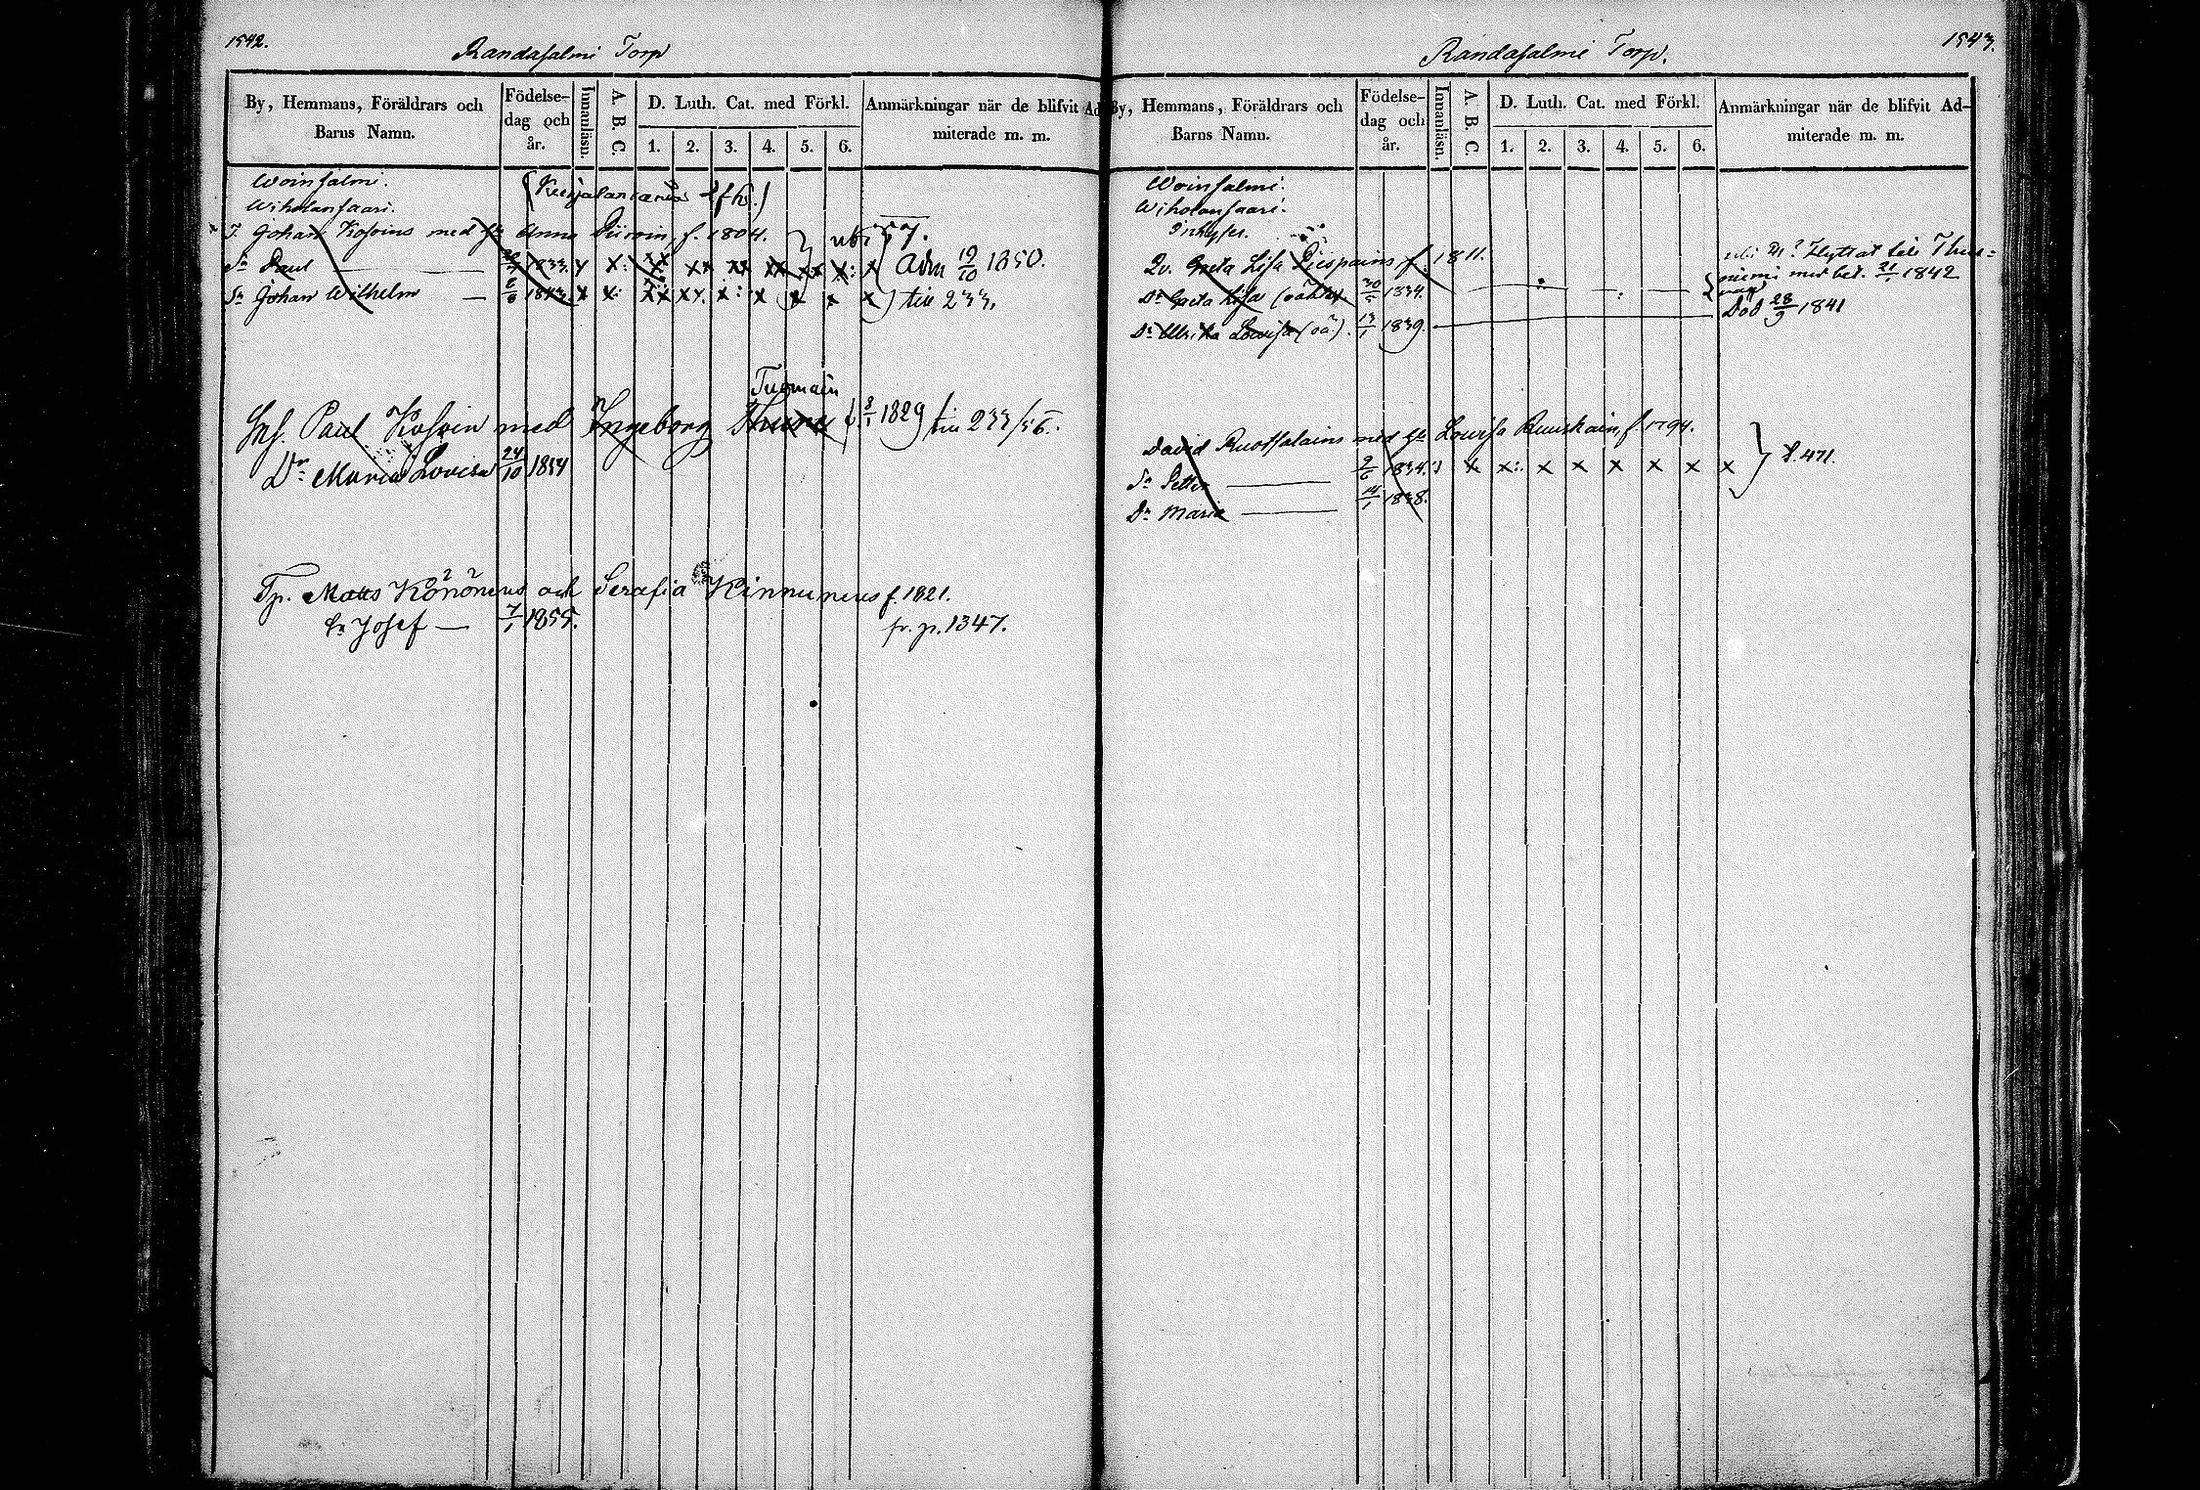 1542.
Randasalmi Torp
By, Hemmans, Föräldrars och Barns Namn.
Födelse-dag och år.
Innanläsn.
A. B. C.
D. Luth. Cat. med Förkl.
1. 2. 3. 4. 5. 6.
Anmärkningar när de blifvit Ad-
miterade m. m.
Woinsalmi.
Wiholansaari.
T. Johan Kosoins med Anna f. 1804. 57.
Sn Paul 1833. x x: Adm 19/10 1850.
Sn Johan Wilhelm 1843. x x: till 233.
Tugmain
Inh. Paul Kosoin med Ingeborg f 3/1 1829 till 233/56.
Dr Maria Lovisa 24/10 1854
Tp. Matts Könönens och Serafia Kinnunens f. 1821.
Sn Josef — 7/1 1855. fr. p. 1347.
1543.
Randasalmi Torp.
By, Hemmans, Föräldrars och Barns Namn.
Födelse-dag och år.
Innanläsn.
A. B. C.
D. Luth. Cat. med Förkl.
1. 2. 3. 4. 5. 6.
Anmärkningar när de blifvit Ad-
miterade m. m.
Woinsalmi.
Wiholansaari.
Inhyses.
Qv. Greta Lisa f. 1811. Flyttat till Thus=
niemi med bet. 21/1 1842
Dr Greta Lisa (oäkta). 30/5 1834.
Dr Ulrika Lovisa (oä.). 13/1 1839. Död 28/9 1841
David Ruotsalains med Lovisa f 1794.
Sn Petter — 9/6 1834. x x: x x x x x x P. 471.
Dr Maria — 14/1 1838.